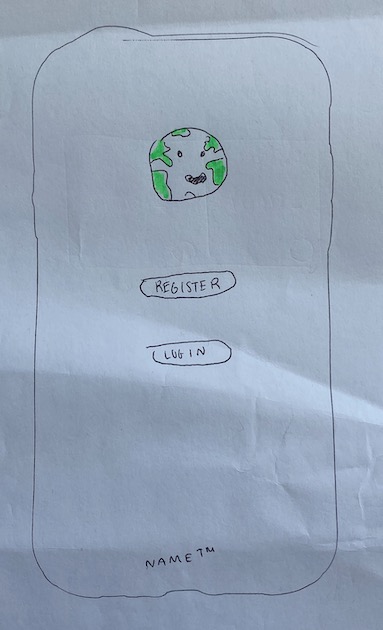 REGISTER
LOGIN
NAME™